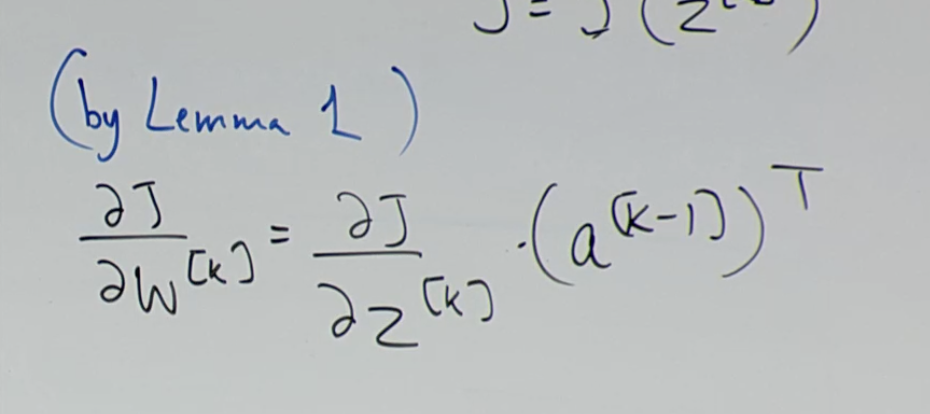 J = J (z
(by Lemma 1)
∂J/∂W^[k] = ∂J/∂z^[k] · (a^[k-1])^T